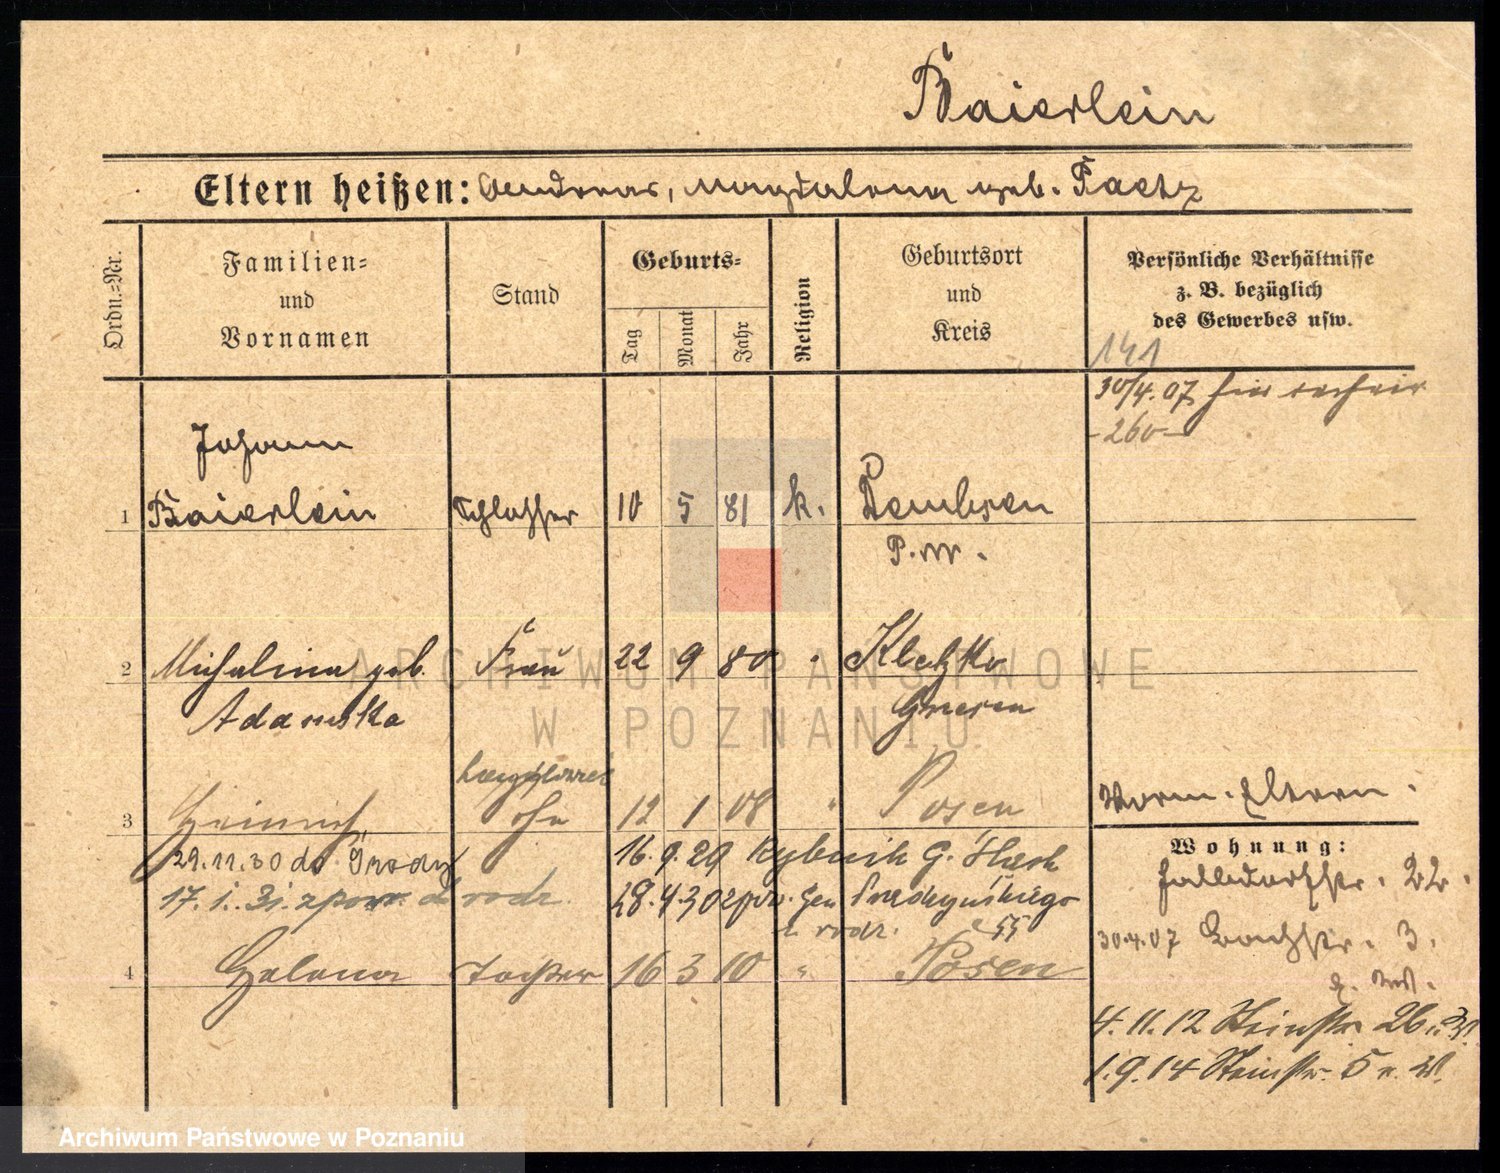 Baierlein
Eltern heißen: Andreas, Magdalena geb. Paetz
Ordn.=Nr.
Familien=
und
Vornamen
Stand
Geburts=
Tag
Monat
Jahr
Religion
Geburtsort
und
Kreis
Persönliche Verhältnisse
z. B. bezüglich
des Gewerbes usw.
141
30/4.07 hier
-260-
Johann
1 Baierlein Schlosser 10 5 81 k. Dembsen
P. W.
2 Michalina geb. Frau 22 9 80 Kletzko
Adamska Gnesen
3 Heinrich 12 1 08 " Posen
Worm. Eltern.
Wohnung:
29.11.30 do Środy 16.9.29 Rybnik G. Śląsk
17.1.31. z pow. do rodz. 28.4.30 Gen Prądzyńskiego
z rodz. 55
4 Helena Tochter 16 3 10 " Posen
22.
30.4.07 Bachstr. 3.
4.11.12 Steinstr. 26
1.9.14 Steinstr. 5
ARCHIWUM PAŃSTWOWE
W POZNANIU
Archiwum Państwowe w Poznaniu